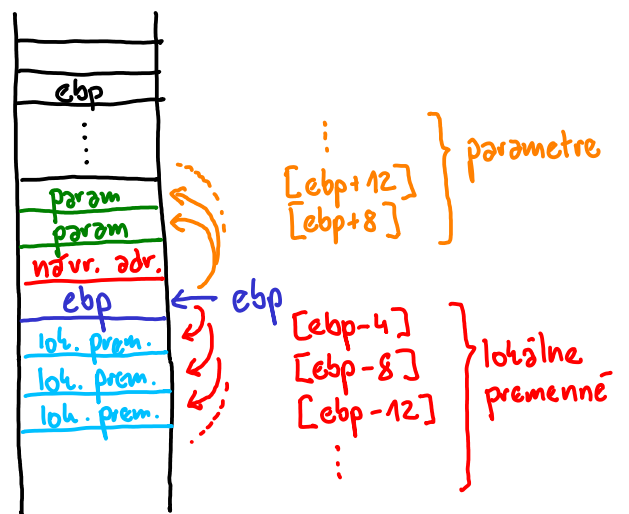 ebp
param
param
návr. adr.
ebp
lok. prem.
lok. prem.
lok. prem.
ebp
[ebp+12]
[ebp+8]
parametre
[ebp-4]
[ebp-8]
[ebp-12]
lokálne
premenné